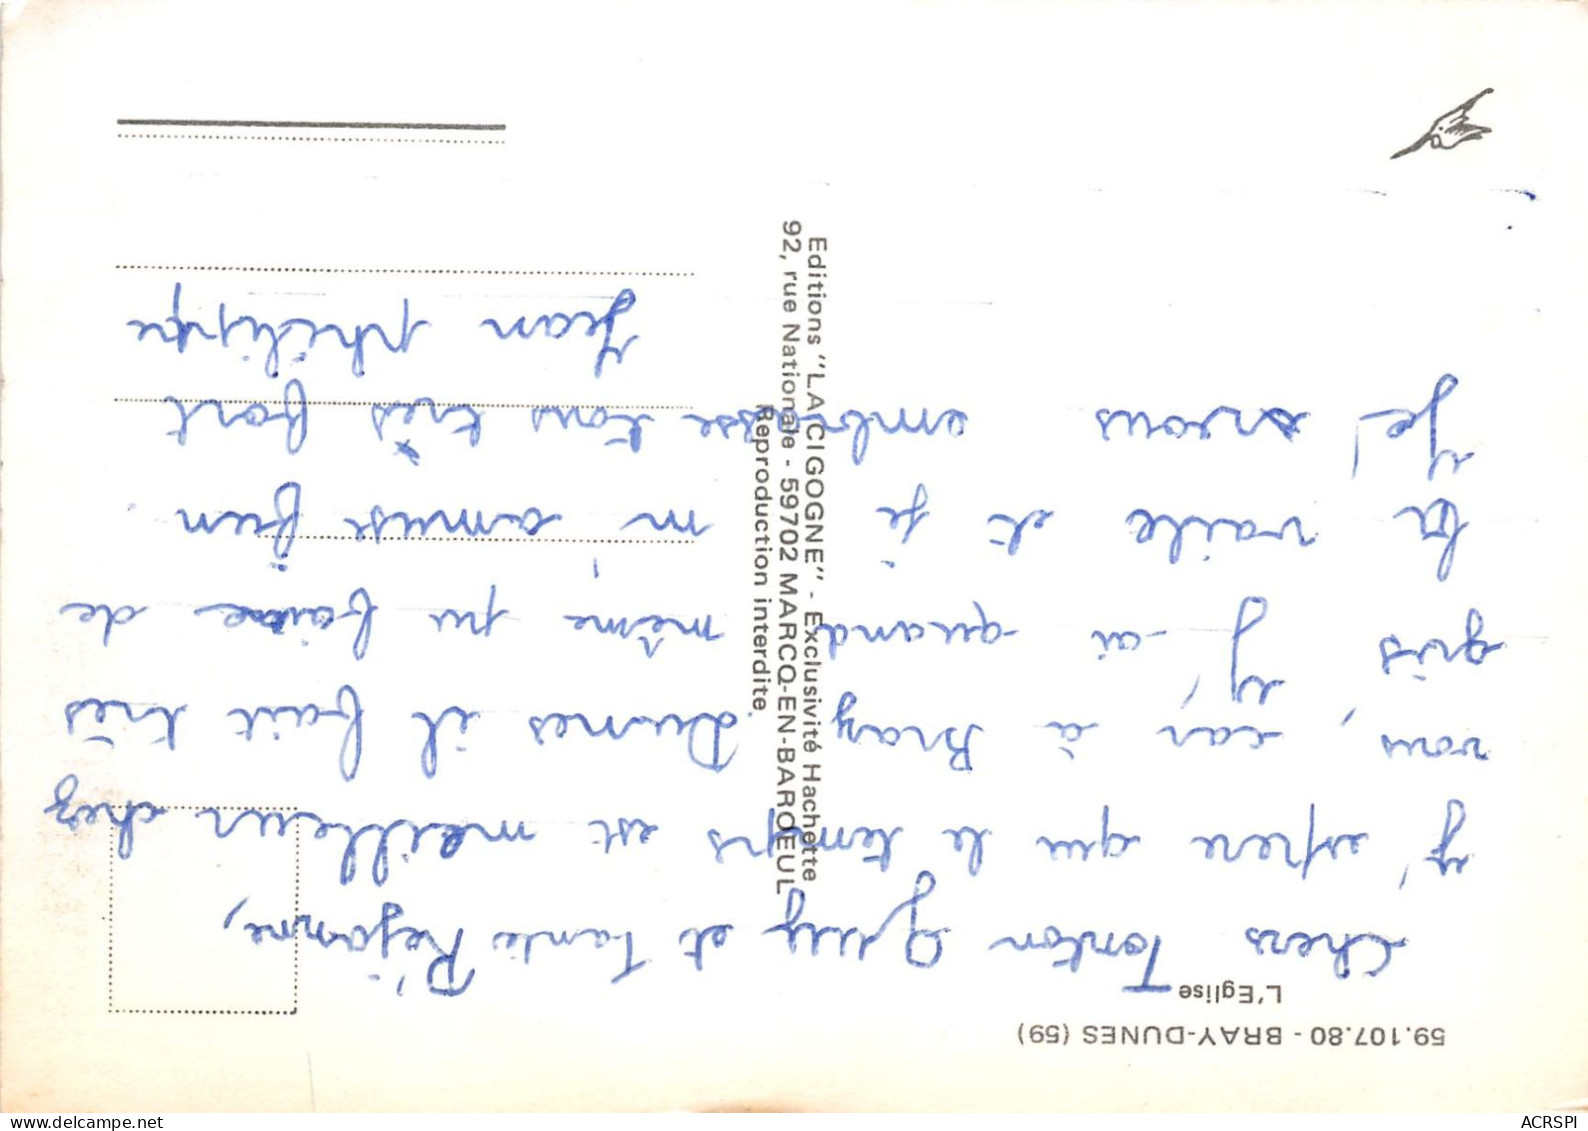 59.107.80 - BRAY-DUNES (59)
L'Eglise
Chers Tonton Guy et Tante Réjanne,
J'espere que le temps est meilleur chez
vous, car à Bray Dunes il fait très
gris, J'ai quand même pu faire de
la voile et je m'amuse bien
Je vous embrasse tous très fort
Jean philippe
Editions "LA CIGOGNE" - Exclusivité Hachette
92, rue Nationale - 59702 MARCQ-EN-BAROEUL
Reproduction interdite
ACRSPI